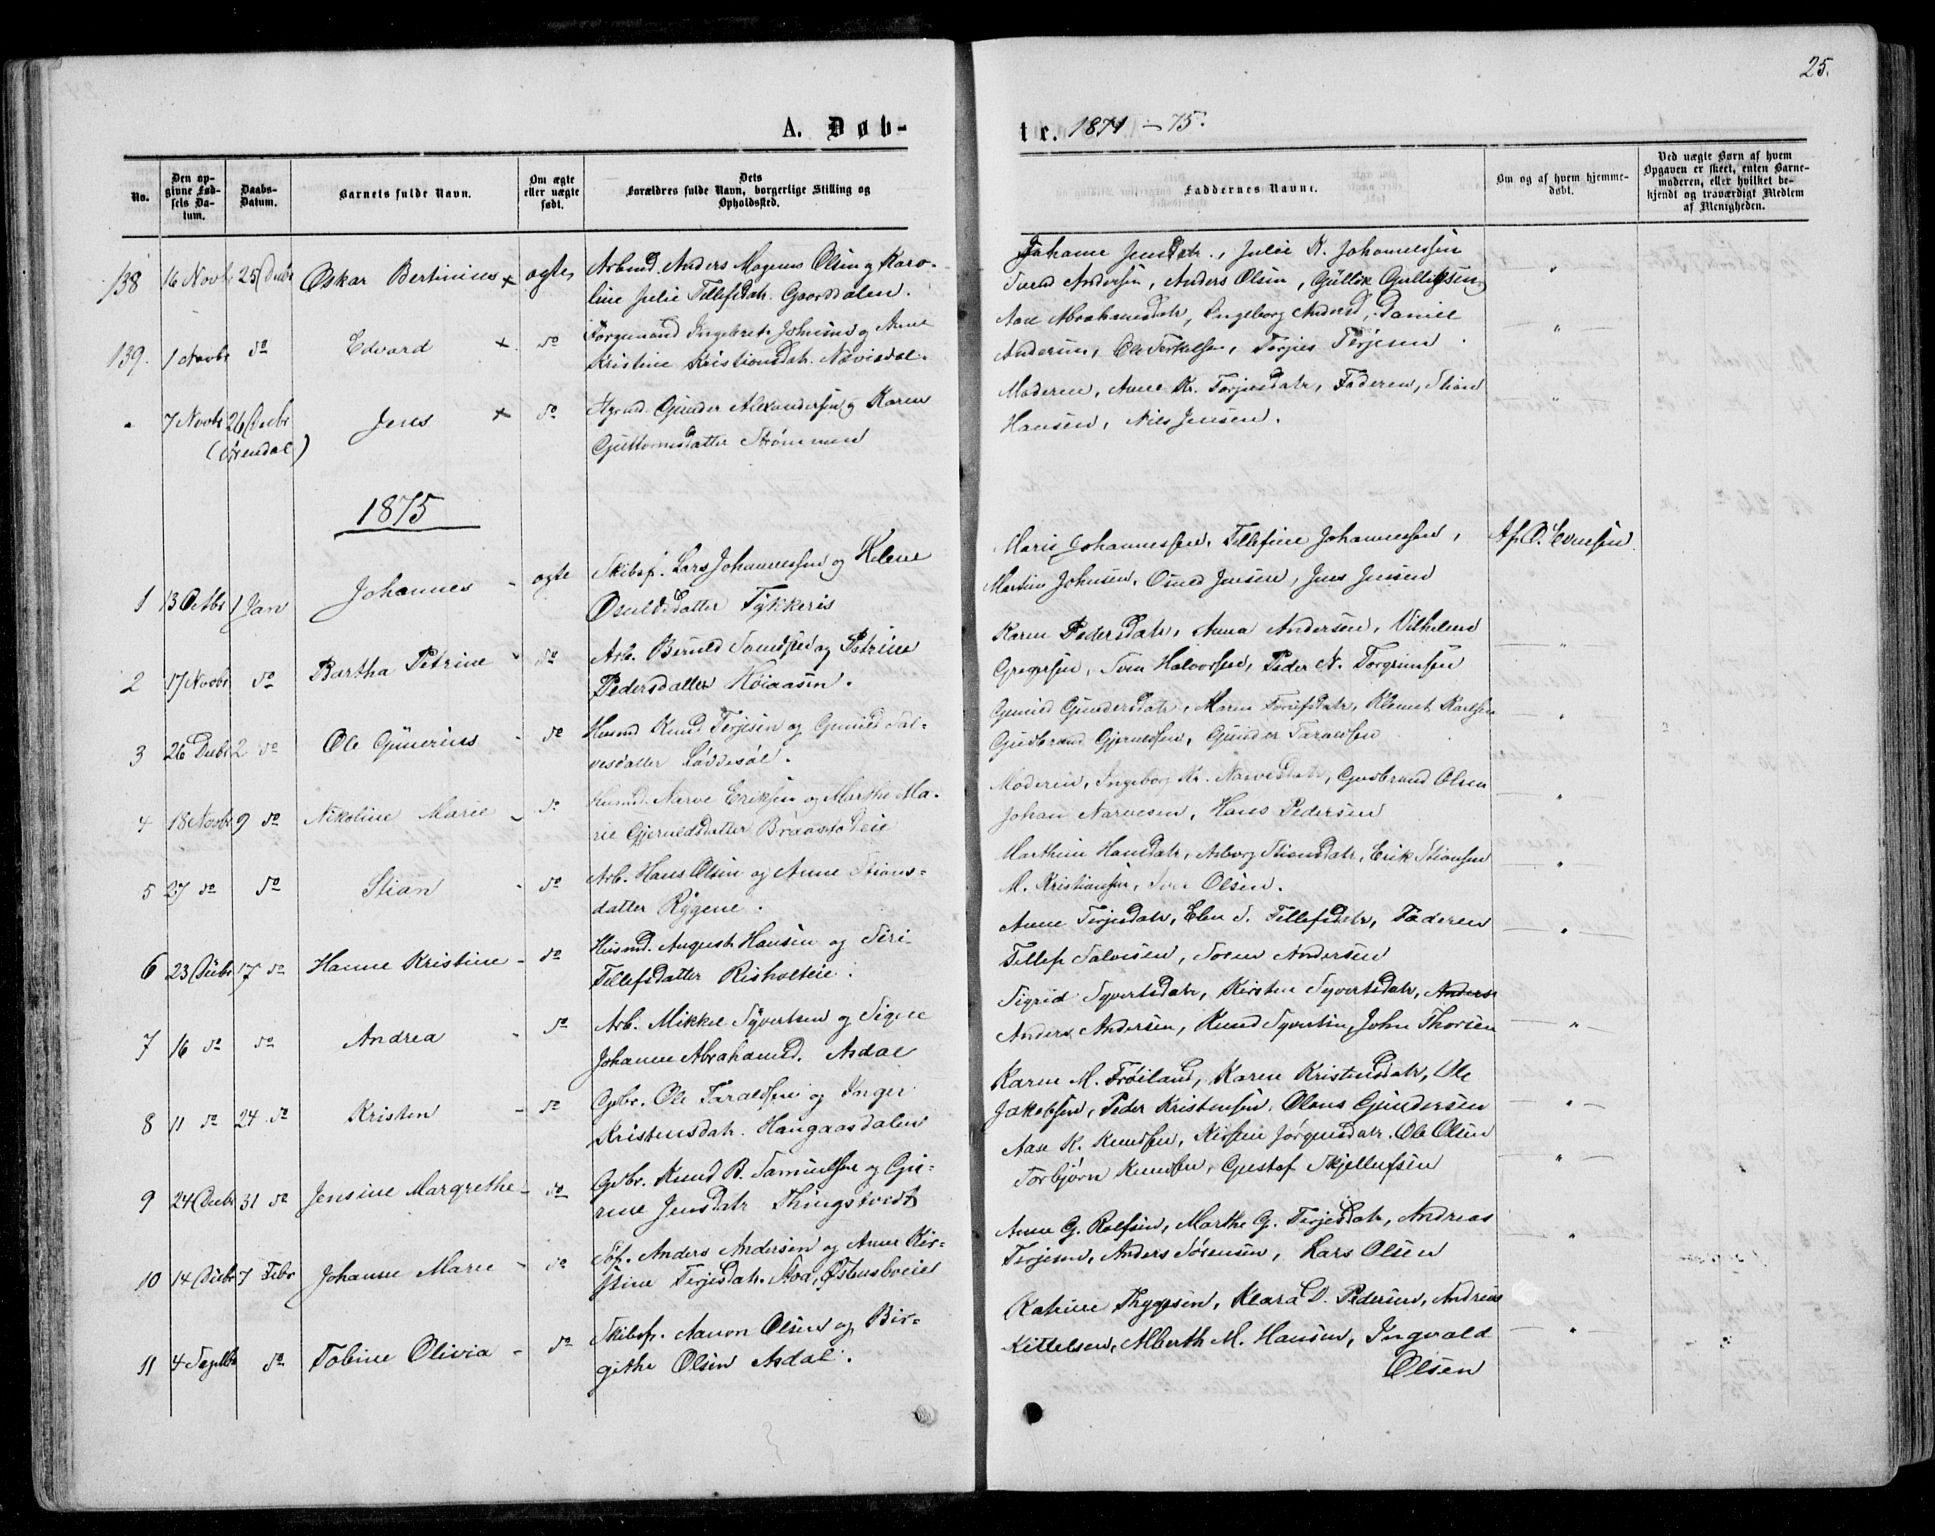 25.
A. Døb-
te. 1874-75.
No.
Den op-
givne Fød-
sels Da-
tum.
Daabs-
Datum.
Barnets fulde Navn.
Om ægte
eller uægte
født.
Dets
Forældres fulde Navn, borgerlige Stilling og
Opholdssted.
Faddernes Navne.
Om og af hvem hjemme-
døbt.
Ved uægte Børn af hvem
Opgaven er skeet, enten Barne-
moderen, eller hvilket be-
kjendt og troværdigt Medlem
af Menigheden.
138 16 Novbr 25 Decbr Oskar Bertinius × ægte
Arbmd. Anders Mogens Olsen og Karo-
line Julie Tellefsdatr. Gaardalen.
Johanne Jensdatr., Julie K. Johannessen
Svend Andersen, Anders Olsen, Gullik Gulliksen,
139. 1 Novbr do Edvard × do
Ingebret Johnsen og Anne
Kristine Kristiansdatr. Nævisdal.
Aase Abrahamsdatr, Ingeborg Andersd, Daniel
Andersen, Ole Terkelsen, Terjes Terjesen.
7 Novbr 26 Decbr Jens × do
(Arendal)
Gunder Alexandersen og Karen
Guttormsdatter Strømmen
Moderen, Anne Kr. Torjusdatr, Faderen, Stian
Hansen, Nils Jensen.
1875
1 13 Octbr 1 Jan Johannes - ægte
Skibsf. Lars Johannessen og Helene
Osuldsdatter Tykkeris
Maris Johannessen, Tellefine Johannessen,
Martin Johnsen, Osmd Jensen, Jens Jensen
Af O. Evensen.
2 17 Novbr do Bertha Petrine - do
Arb. Beruld Svendsen og Petrine
Pedersdatter Høiaasen.
Karen Pedersdatr, Anna Andersen, Vilhelm
Gregersen, Sven Halvorsen, Peder N. Torgrimsen
3 26 Decbr 2 do Ole Gunerius - do
Husmd Knud Terjesen og Gunild Sal-
vesdatter Løddesøl.
Gunild Gundersdatr, Maren Torufsdatr, Klemet Karlsen
Gudbrand Gjeruldsen, Gunder Taraldsen
4 18 Novbr 9 do Nikoline Marie - do
Husmd. Narve Eriksen og Marthe Ma-
rie Gjeruldsdatter Braastadeie
Moderen, Ingeborg Kr. Narvesdatr, Gudbrand Olsen
Johan Narvesen, Hans Pedersen
5 27 do do Stian - do
Arb. Hans Olsen og Anne Stians-
datter Rygene.
Marthine Hansdatr, Asborg Stiansdatr, Erik Stiansen
M. Kristiansen, Iver Olsen.
6 23 Decbr 17 do Hanne Kristine - do
Husmd. August Hansen og Siri
Tellefsdatter Risholteie.
Anne Terjesdatr, Elen S. Tellefsdatr, Faderen
Tellef Salvesen, Søren Andersen
7 16 do do Andrea - do
Arb. Mikkel Syvertsen og Signe
Johanne Abrahamsd. Asdal
Sigrid Syvertsdatr, Kirsten Syvertsdatr, Anders
Anders Andersen, Knud Syvertsen, John Thorsen
8 11 do 24 do Kristen - do
Gbr. Ole Taraldsen og Inger
Kristensdatr. Haugaasdalen
Karen M. Frøiland, Karen Kristensdatr, Ole
Jakobsen, Peder Kristensen, Olaus Gundersen
9 24 Decbr 31 do Jensine Margrethe - do
Gbr. Knud B. Samuelsen og Gu-
rine Jensdatr Thingstvedt
Aase K. Knudsen, Kirstine Jørgensdatr. Ole Olsen
Torbjørn Knudsen, Gustaf Skjellufsen
10 14 Decbr 7 Febr Johanne Marie - do
Anders Andersen og Anne Kir-
stine Terjesdatr. Stoa, Østensbueiet
Anne G. Rolfsen, Marthe G. Terjesdatr, Andreas
Terjesen, Anders Sørensen, Lars Olsen
11 4 Septbr do Tobine Olivia - do
Skibsf. Aanon Olsen og Bir-
githe Olsen Asdal.
Katrine Thygesen, Klara D. Pedersen, Andreas
Kittelsen, Alberth M. Hansen, Ingvald
Olsen